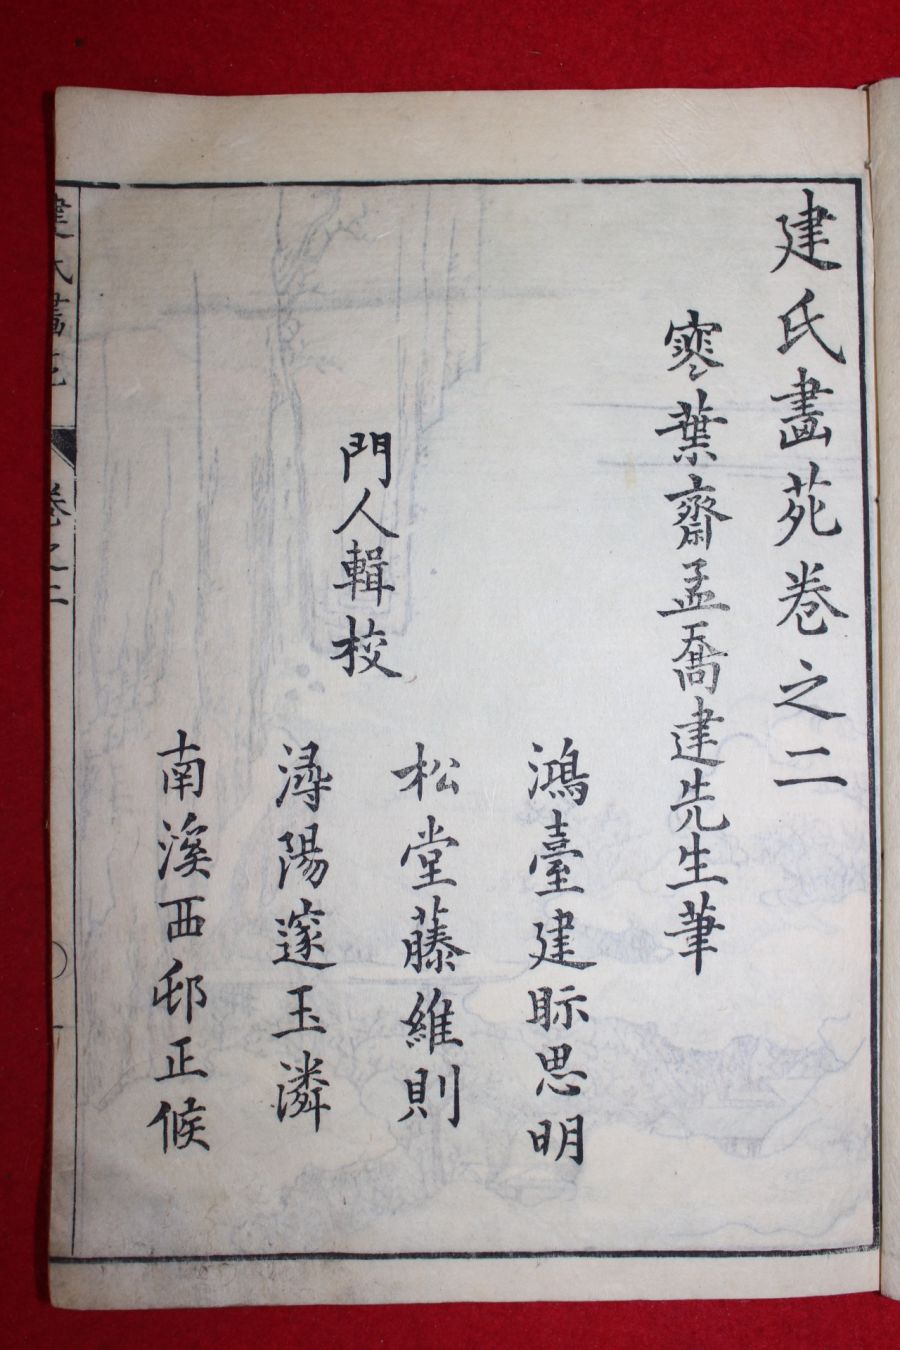 建氏畫苑卷之二
寒葉齋孟喬建先生筆
鴻臺建眎思明
松堂藤維則
門人輯校
潯陽邃玉潾
南溪西邨正候
建氏畫苑
卷之二